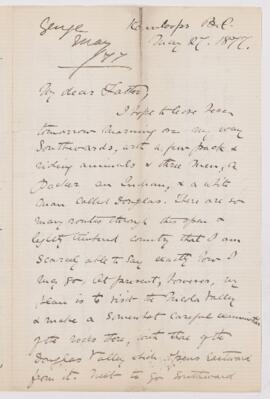 George
May
/77
Kamloops B.C.
May 27. 1877.
My dear Father,
I hope to leave here
tomorrow morning on my way
Southwards, with a few pack &
riding animals & three men, a
Packer an Indian, & a white
man called Douglas. There are so
many routes through this open &
lightly timbered country that I am
scarcely able to say exactly how I
may go. At present, however, my
plan is to visit to Nicola Valley
& make a somewhat careful examination
of the rocks there, with those of the
Douglas Valley which opens eastward
from it. Next to go Southward